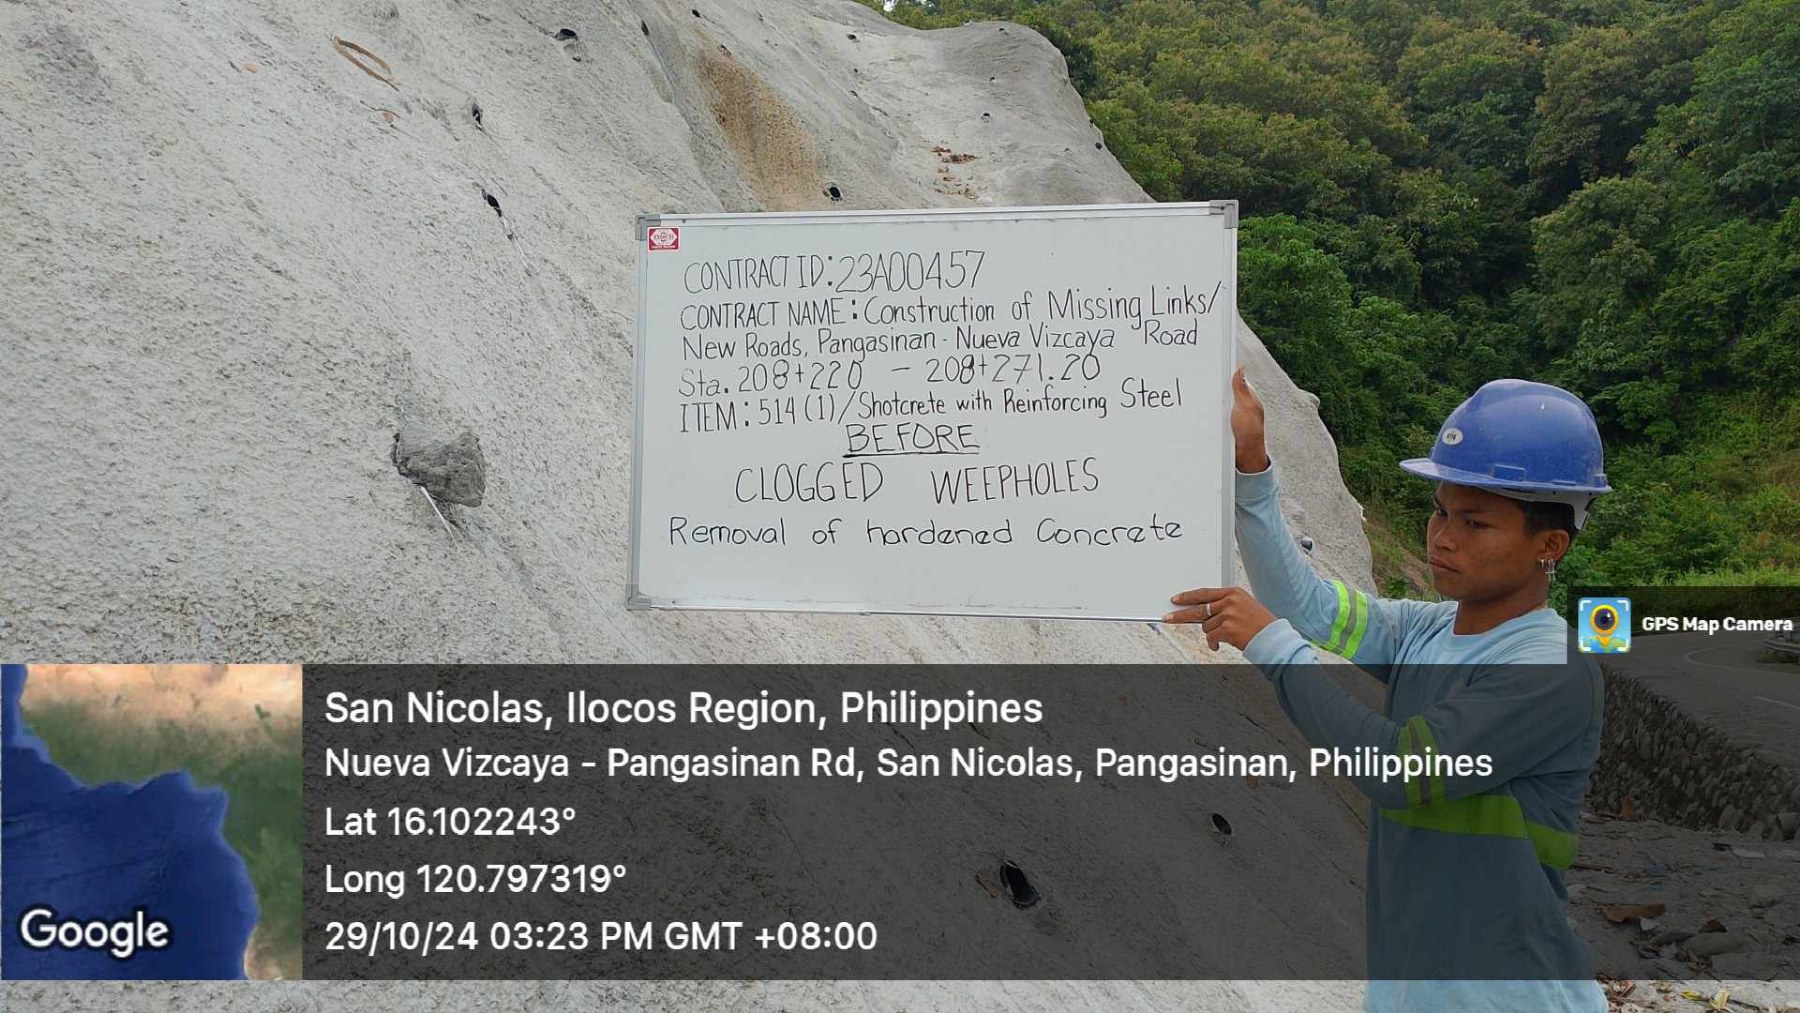 CONTRACT ID: 23A00457
CONTRACT NAME: Construction of Missing Links/
New Roads, Pangasinan - Nueva Vizcaya Road
Sta. 208+220 - 208+271.20
ITEM: 514 (1)/Shotcrete with Reinforcing Steel
BEFORE
CLOGGED WEEPHOLES
Removal of hardened Concrete
GPS Map Camera
San Nicolas, Ilocos Region, Philippines
Nueva Vizcaya - Pangasinan Rd, San Nicolas, Pangasinan, Philippines
Lat 16.102243°
Long 120.797319°
29/10/24 03:23 PM GMT +08:00
Google